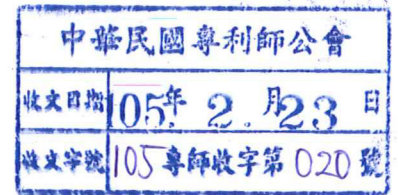 中華民國專利師公會
收文日期 105年 2.月23 日
收文字號 105專師收字第020號